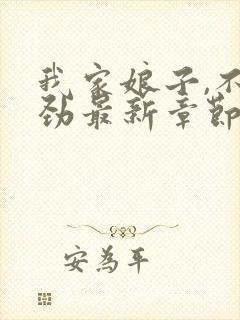 我家娘子,不
劲最新章节
安为平